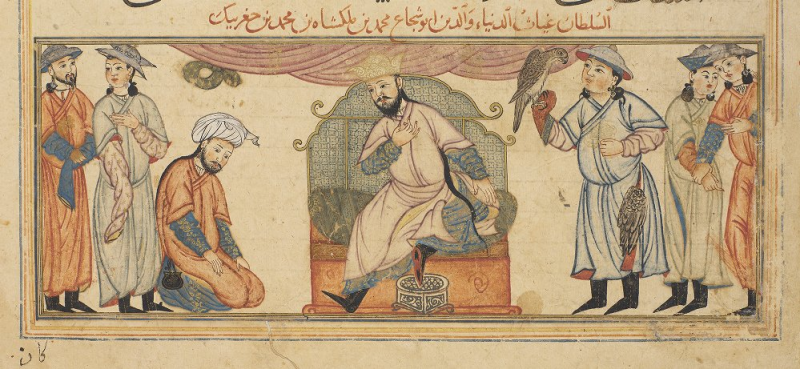 السلطان غیاث الدنیا والدین ابو شجاع محمد بن ملکشاه بن محمد بن جغربیک
کان